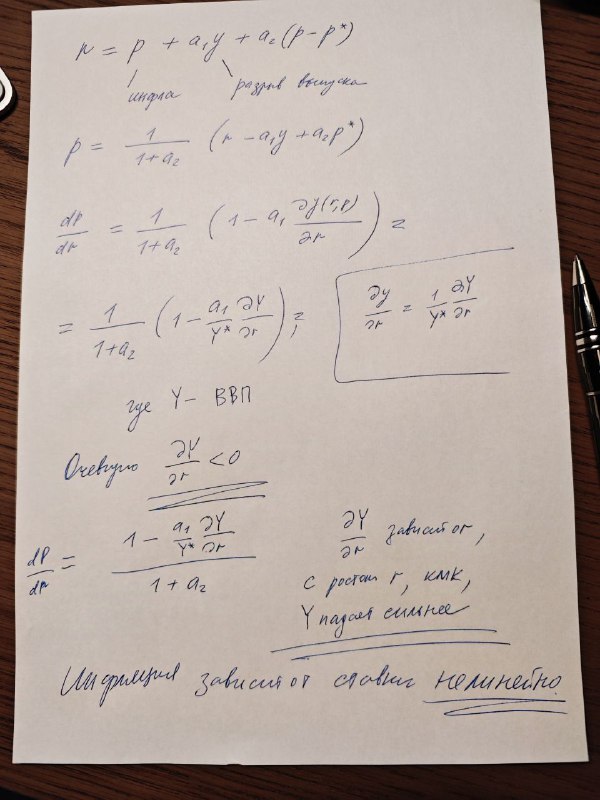 r = p + a₁y + a₂(p - p*)
инфла разрыв выпуска
p = 1/(1+a₂) (r - a₁y + a₂p*)
dP/dr = 1/(1+a₂) (1 - a₁ ∂y(r,p)/∂r) =
= 1/(1+a₂) (1 - a₁/Y* ∂Y/∂r) =
∂y/∂r = 1/Y* ∂Y/∂r
где Y - ВВП
Очевидно ∂Y/∂r < 0
dP/dr = (1 - a₁/Y* ∂Y/∂r)/(1+a₂)
∂Y/∂r зависит от r,
с ростом r, кмк,
Y падает сильнее
Инфляция зависит от ставки нелинейно